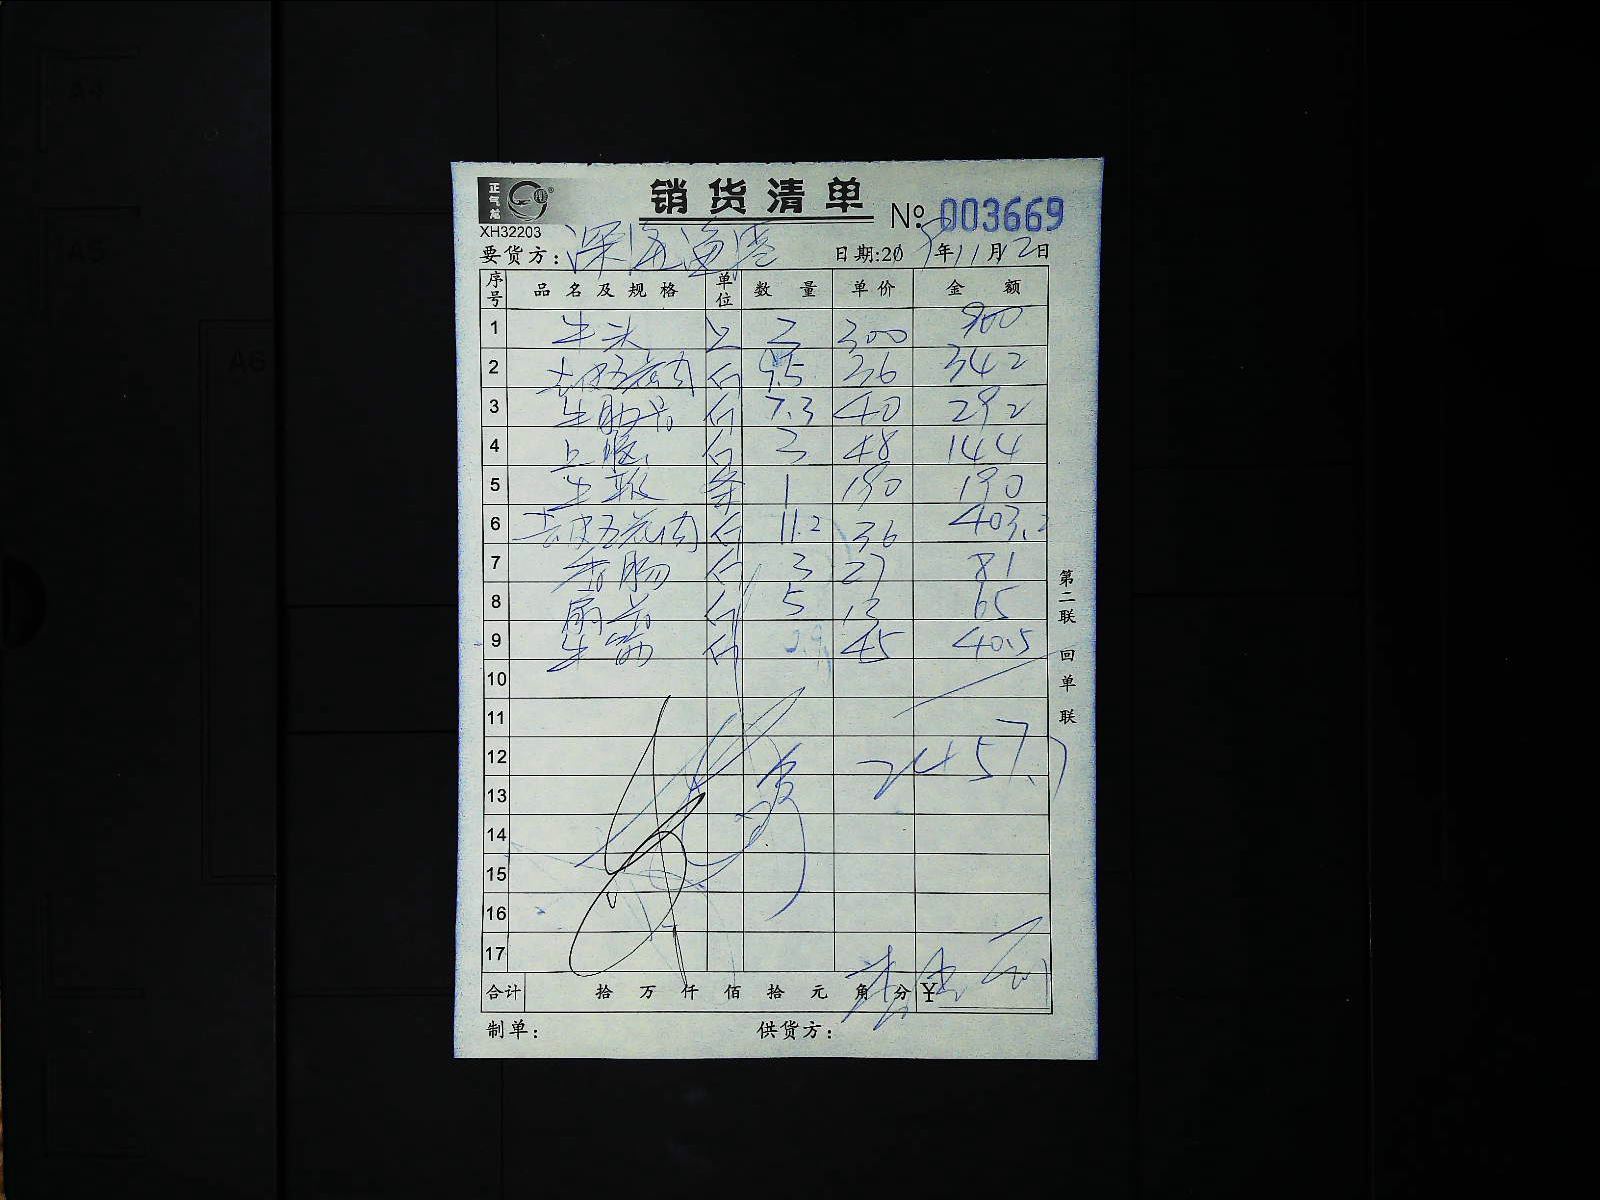 正气龙
销货清单
XH32203
№ 003669
要货方: 深 海 港 日期:20 9年11月2日
序号 品名及规格 单位 数量 单价 金额
1 牛头 只 3 300 900
2 去皮五花肉 斤 9.5 36 342
3 牛 斤 7.3 40 292
4 上脑 斤 3 48 144
5 牛 条 1 190 190
6 去皮五花肉 斤 11.2 36 403.2
7 香肠 斤 3 27 81
8 扇骨 斤 5 13 65
9 牛 斤 0.9 45 40.5
10
11
12 2457.7
13
14
15
16
17
合计 拾 万 仟 佰 拾 元 角 分 ¥
制单: 供货方:
第二联 回单联